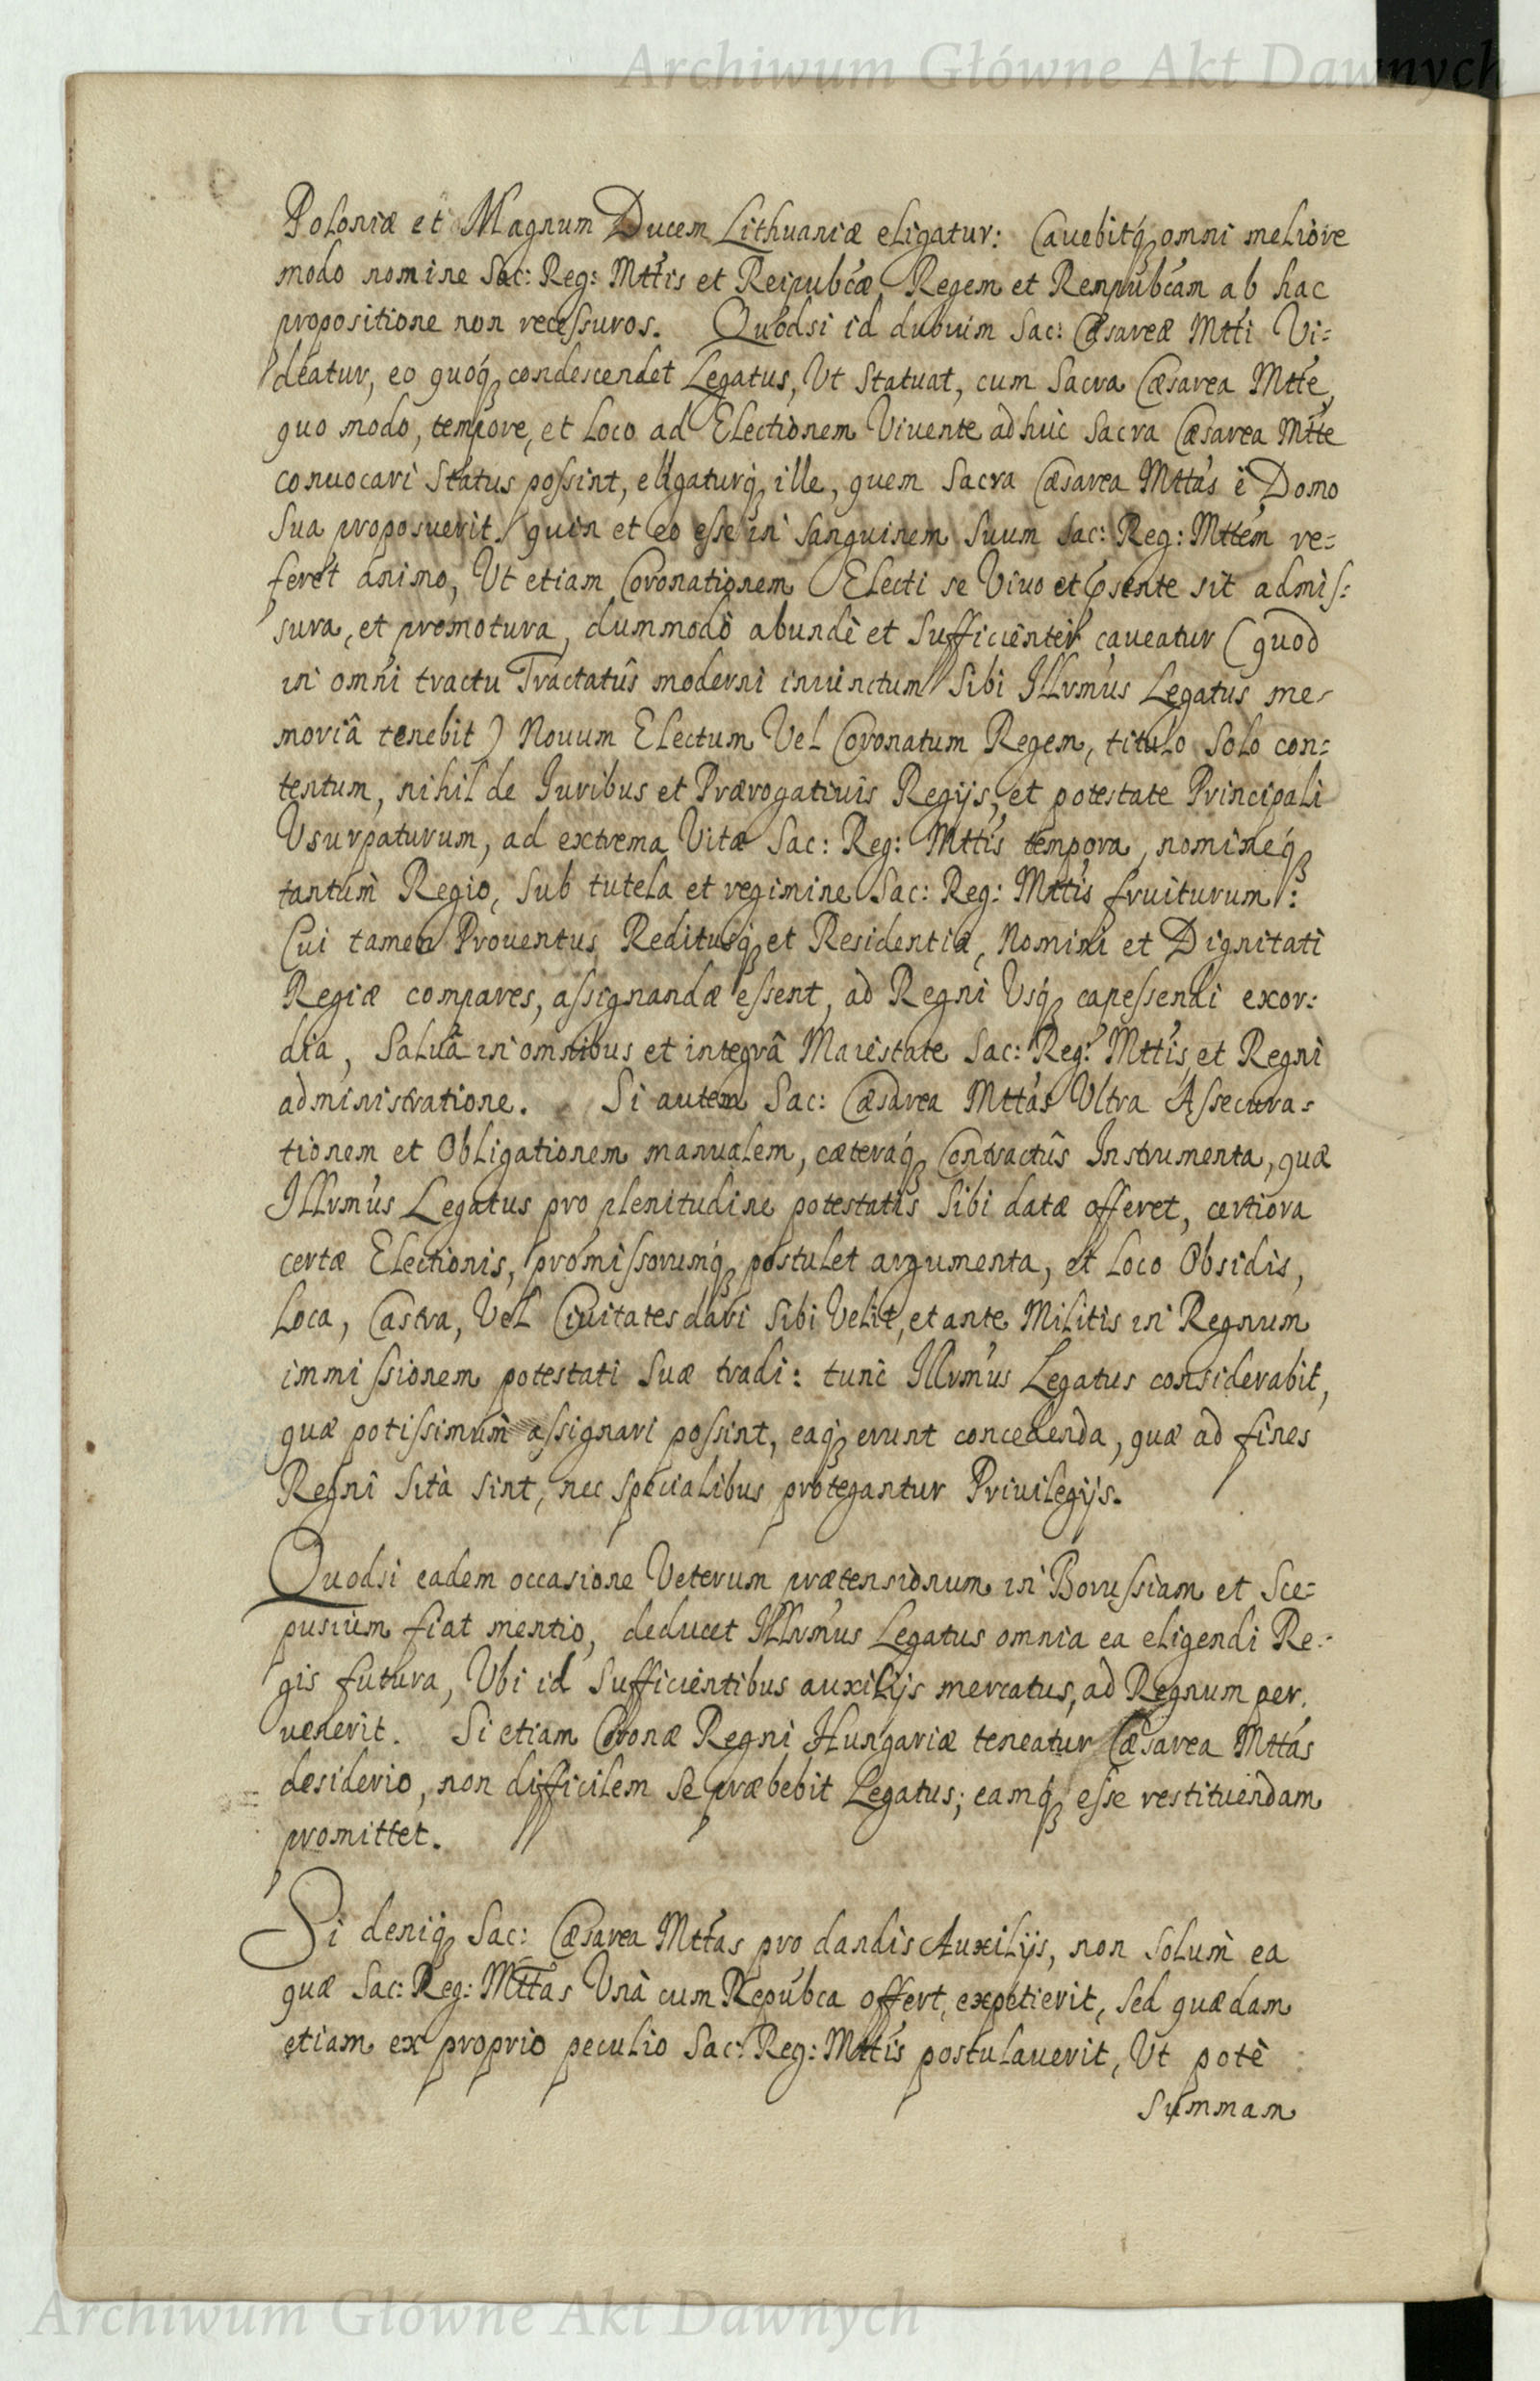 Archiwum Główne Akt Dawnych
Poloniæ et Magnum Ducem Lithuaniæ eligatur: Cauebitq́ꝫ omni meliore
modo nomine Sac: Reg: Mttis et Reipubcæ, Regem et Rempubcam ab hac
propositione non recessuros. Quodsi id dubium Sac: Cæsareæ Mtti Vi=
deatur, eo quoq́ꝫ condescendet Legatus, Vt Statuat, cum Sacra Cæsarea Mtte,
quo modo, tempore, et Loco ad Electionem Viuente adhùc Sacra Cæsarea Mtte
conuocari Status possint, eligaturq́ꝫ ille, quem Sacra Cæsarea Mttas è Domo
Sua proposuerit. quin et eo esse in Sanguinem Suum Sac: Reg: Mttem re=
feret animo, Vt etiam Coronationem Electi se Viuo et p̄sente sit admis=
sura, et promotura, dummodò abundè et Sufficientèr caueatur (quod
in omni tractu Tractatûs moderni iniunctum Sibi Illrmus Legatus me-
moriâ tenebit) Nouum Electum Vel Coronatum Regem, titulo Solo con=
tentum, nihil de Iuribus et Prærogatiuis Regijs, et potestate Principali
Vsurpaturum, ad extrema Vitæ Sac: Reg: Mttis tempora, nomineq́ꝫ
tantùm Regio, Sub tutela et regimine Sac: Reg: Mttis fruiturum:
Cui tamen Prouentus Reditusq́ꝫ et Residentiæ, Nomini et Dignitati
Regiæ compares, assignandæ essent, ad Regni Vsq́ꝫ capessendi exor=
dia, Saluâ in omnibus et integrâ Maiestate Sac: Reg: Mttis et Regni
administratione. Si autem Sac: Cæsarea Mttas Vltra Assecura=
tionem et Obligationem manualem, cæteraq́ꝫ Contractûs Instrumenta, quæ
Illrmus Legatus pro plenitudine potestatis Sibi datæ offeret, certiora
certæ Electionis, promissorumq́ꝫ postulet argumenta, et Loco Obsidis,
Loca, Castra, Vel Ciuitates dari Sibi Velit, et ante Militis in Regnum
immissionem potestati Suæ tradi: tunc Illrmus Legatus considerabit,
quæ potissimùm assignari possint, eaq́ꝫ erunt concedenda, quæ ad fines
Regni Sita sint, nec specialibus protegantur Priuilegijs.
Quodsi eadem occasione Veterum prætensionum in Borussiam et Sce=
pusium fiat mentio, deducet Illrmus Legatus omnia ea eligendi Re=
gis futura, Vbi id Sufficientibus auxilijs mercatus, ad Regnum per
uenerit. Si etiam Coronæ Regni Hungariæ teneatur Cæsarea Mttas
desiderio, non difficilem Se præbebit Legatus; eamq́ꝫ esse restituendam
promittet.
Si deniq́ꝫ Sac: Cæsarea Mttas pro dandis Auxilijs, non Solùm ea
quæ Sac: Reg: Mttas Vnà cum Repubca offert, expetierit, Sed quædam
etiam ex proprio peculio Sac: Reg: Mttis postulauerit, Vt potè
Summam
Archiwum Główne Akt Dawnych